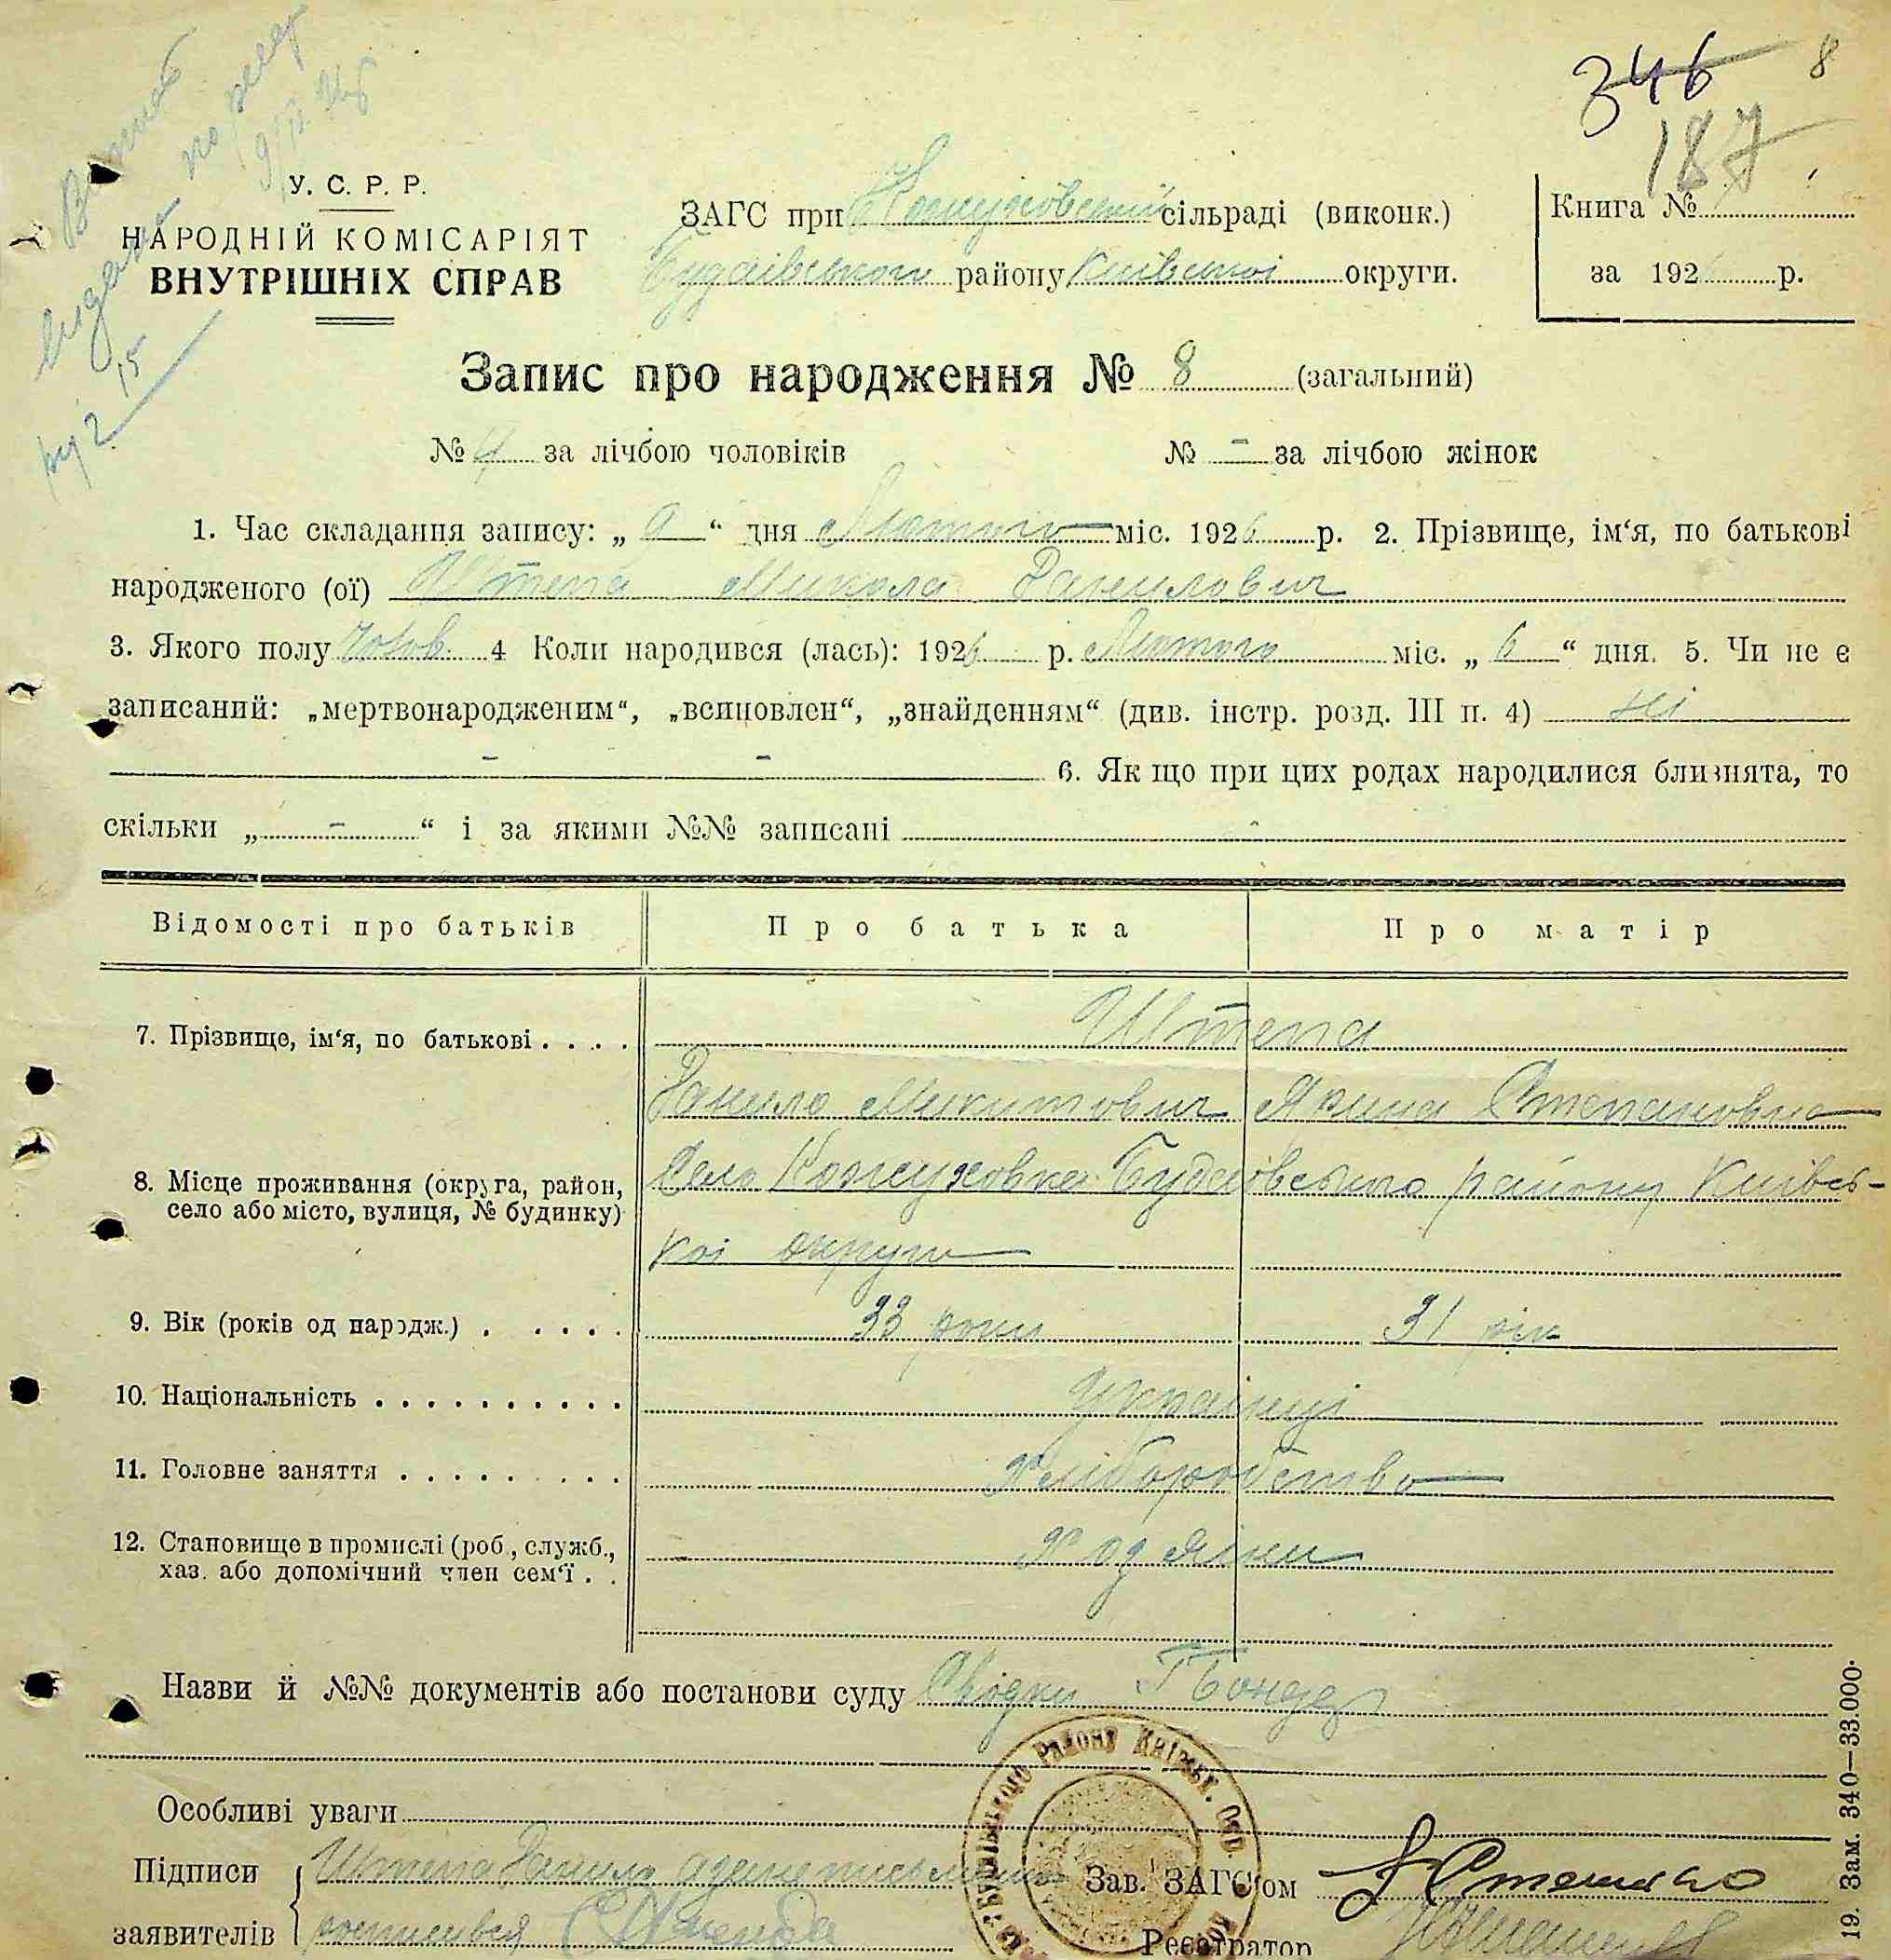 346 8
187
У. С. Р. Р.
НАРОДНІЙ КОМІСАРІЯТ
ВНУТРІШНІХ СПРАВ
ЗАГС при Кожуховській сільраді (виконк.)
Будаівського району Київської округи.
Книга №
за 192 р.
Запис про народження № 8 (загальний)
№ 4 за лічбою чоловіків № - за лічбою жінок
1. Час складання запису: „ 9 “ дня Лютого міс. 1926 р. 2. Прізвище, ім‘я, по батькові
народженого (ої) Штепа Микола Данилович
3. Якого полу чолов. 4 Коли народився (лась): 1926 р. Лютого міс. „ 6 “ дня. 5. Чи не є
записаний: „мертвонародженим“, „всиновлен“, „знайденням“ (див. інстр. розд. III п. 4) ні
- - 6. Як що при цих родах народилися близнята, то
скільки „ - “ і за якими №№ записані -
Відомості про батьків Про батька Про матір
7. Прізвище, ім‘я, по батькові . . . . Штепа
Данило Микитович Ярина Степановна
8. Місце проживання (округа, район, село або місто, вулиця, № будинку) Село Кожуховка Будаївського району Київсь-
кої округи
9. Вік (років од народж.) . . . . . 33 роки 31 рік
10. Національність . . . . . . . . . . Українці
11. Головне заняття . . . . . . . . . Хліборобство
12. Становище в промислі (роб, служб.,
хаз. або допомічний член сем‘ї . .
Назви й №№ документів або постанови суду
Особливі уваги
Підписи Штепа Данило
заявителів
Зав. ЗАГС‘ом
Реєстратор
19. Зам. 340—33.000.